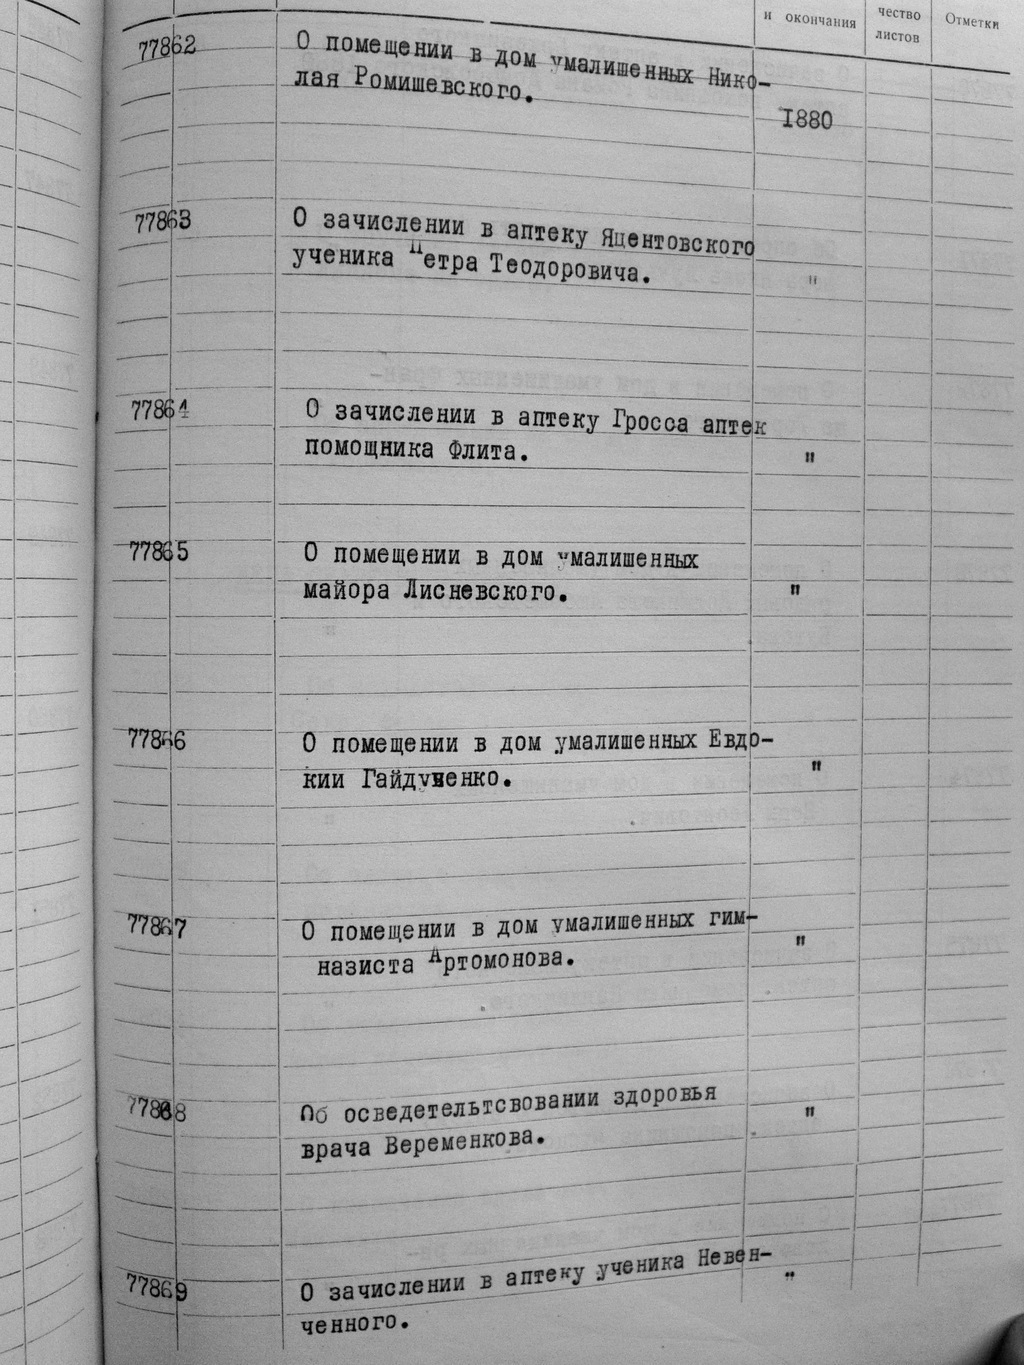 и окончания
чество
листов
Отметки
77862
О помещении в дом умалишенных Нико-
лая Ромишевского.
1880
77863
О зачислении в аптеку Яцентовского
ученика Петра Теодоровича.
"
77864
О зачислении в аптеку Гросса аптек
помощника Флита.
"
77865
О помещении в дом умалишенных
майора Лисневского.
"
77866
О помещении в дом умалишенных Евдо-
кии
"
77867
О помещении в дом умалишенных гим-
назиста Артомонова.
"
77868
Об осведетельтсвовании здоровья
врача Веременкова.
"
77869
О зачислении в аптеку ученика Невен-
ченного.
"